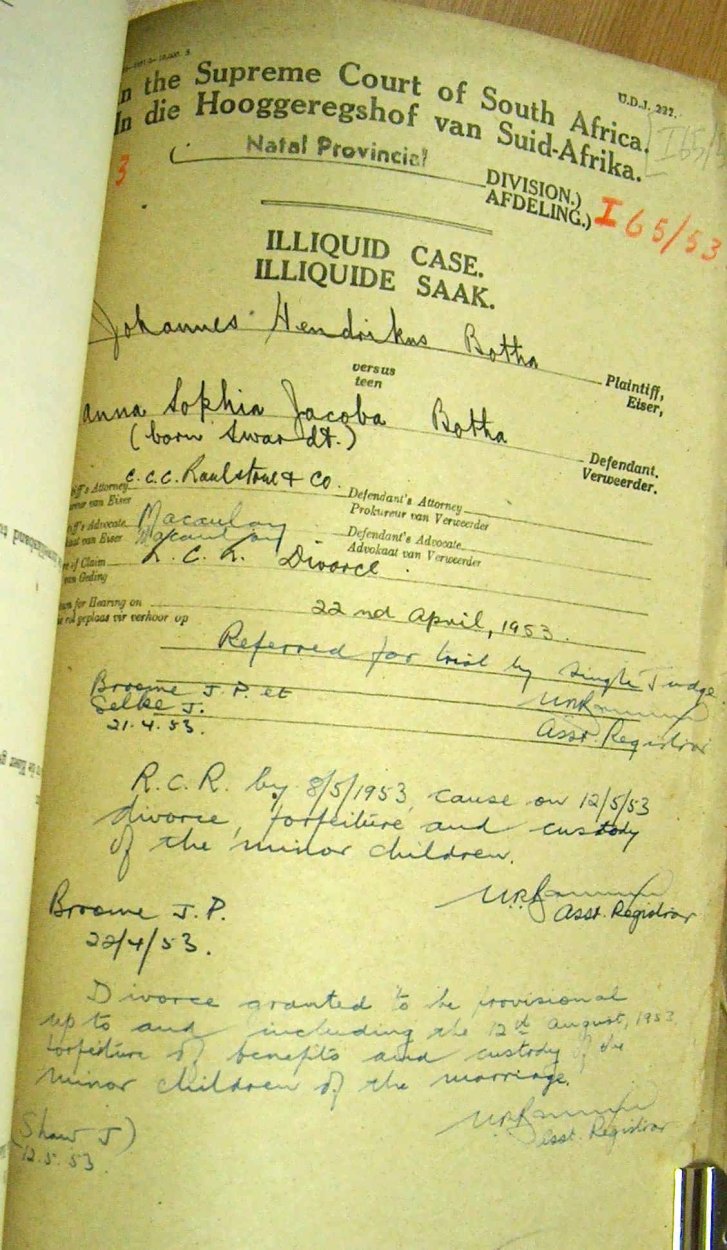 U.D.J. 227.
n the Supreme Court of South Africa.
In die Hooggeregshof van Suid-Afrika.
I65/
3
( Natal Provincial DIVISION.)
AFDELING.)
I 65/53
ILLIQUID CASE.
ILLIQUIDE SAAK.
Johannes Hendrikus Botha
Plaintiff,
Eiser,
versus
teen
Anna Sophia Jacoba Botha
(born Swardt.)
Defendant.
Verweerder.
ff's Attorney C.C.C. Raulstone & Co.
eur van Eiser
Defendant's Attorney
Prokureur van Verweerder
ff's Advocate Macaulay
aat van Eiser Macaulay
Defendant's Advocate
Advokaat van Verweerder
e of Claim Divorce.
van Geding
wn for Hearing on 22nd April, 1953.
e rol geplaas vir verhoor op
Referred for trial by Single Judge
Broome J.P. et
Selke J.
21.4.53.
Asst. Registrar
R.C.R. by 8/5/1953, cause on 12/5/53
divorce, forfeiture and custody
of the minor children.
Asst. Registrar
Broome J.P.
22/4/53.
Divorce granted to be provisional
up to and including the 12th August, 1953
forfeiture of benefits and custody of the
minor children of the marriage.
Asst. Registrar
(Shaw J)
12.5.53.